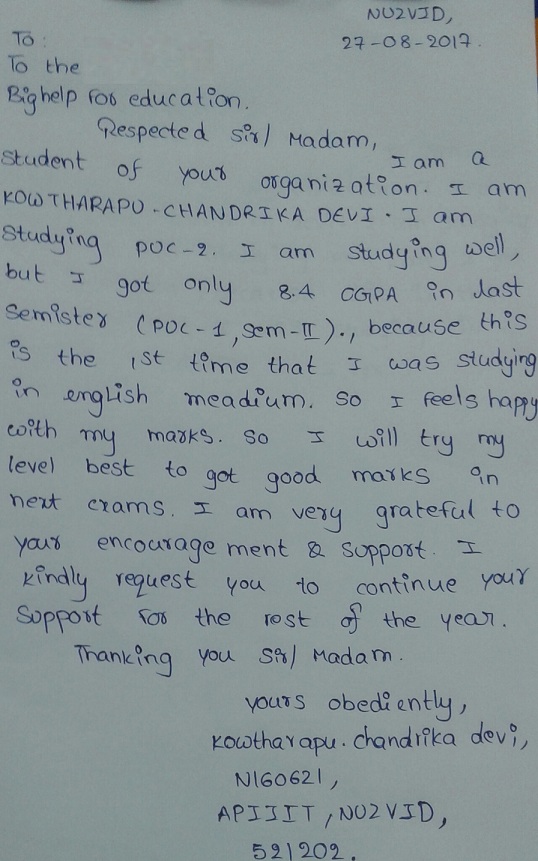 NUZVID,
27-08-2017.
To:
To the
Bighelp for education.
Respected Sir/ Madam,
I am a
Student of your organization. I am
KOWTHARAPU.CHANDRIKA DEVI. I am
Studying PUC-2. I am studying well,
but I got only 8.4 CGPA in last
Semister (PUC-1, Sem-II)., because this
is the 1st time that I was studying
in english meadium. So I feels happy
with my marks. So I will try my
level best to got good marks in
next exams. I am very grateful to
your encouragement & support. I
kindly request you to continue your
Support for the rest of the year.
Thanking you Sir/ Madam.
yours obediently,
Kowtharapu. chandrika devi,
N160621,
APIIIT, NUZVID,
521202.